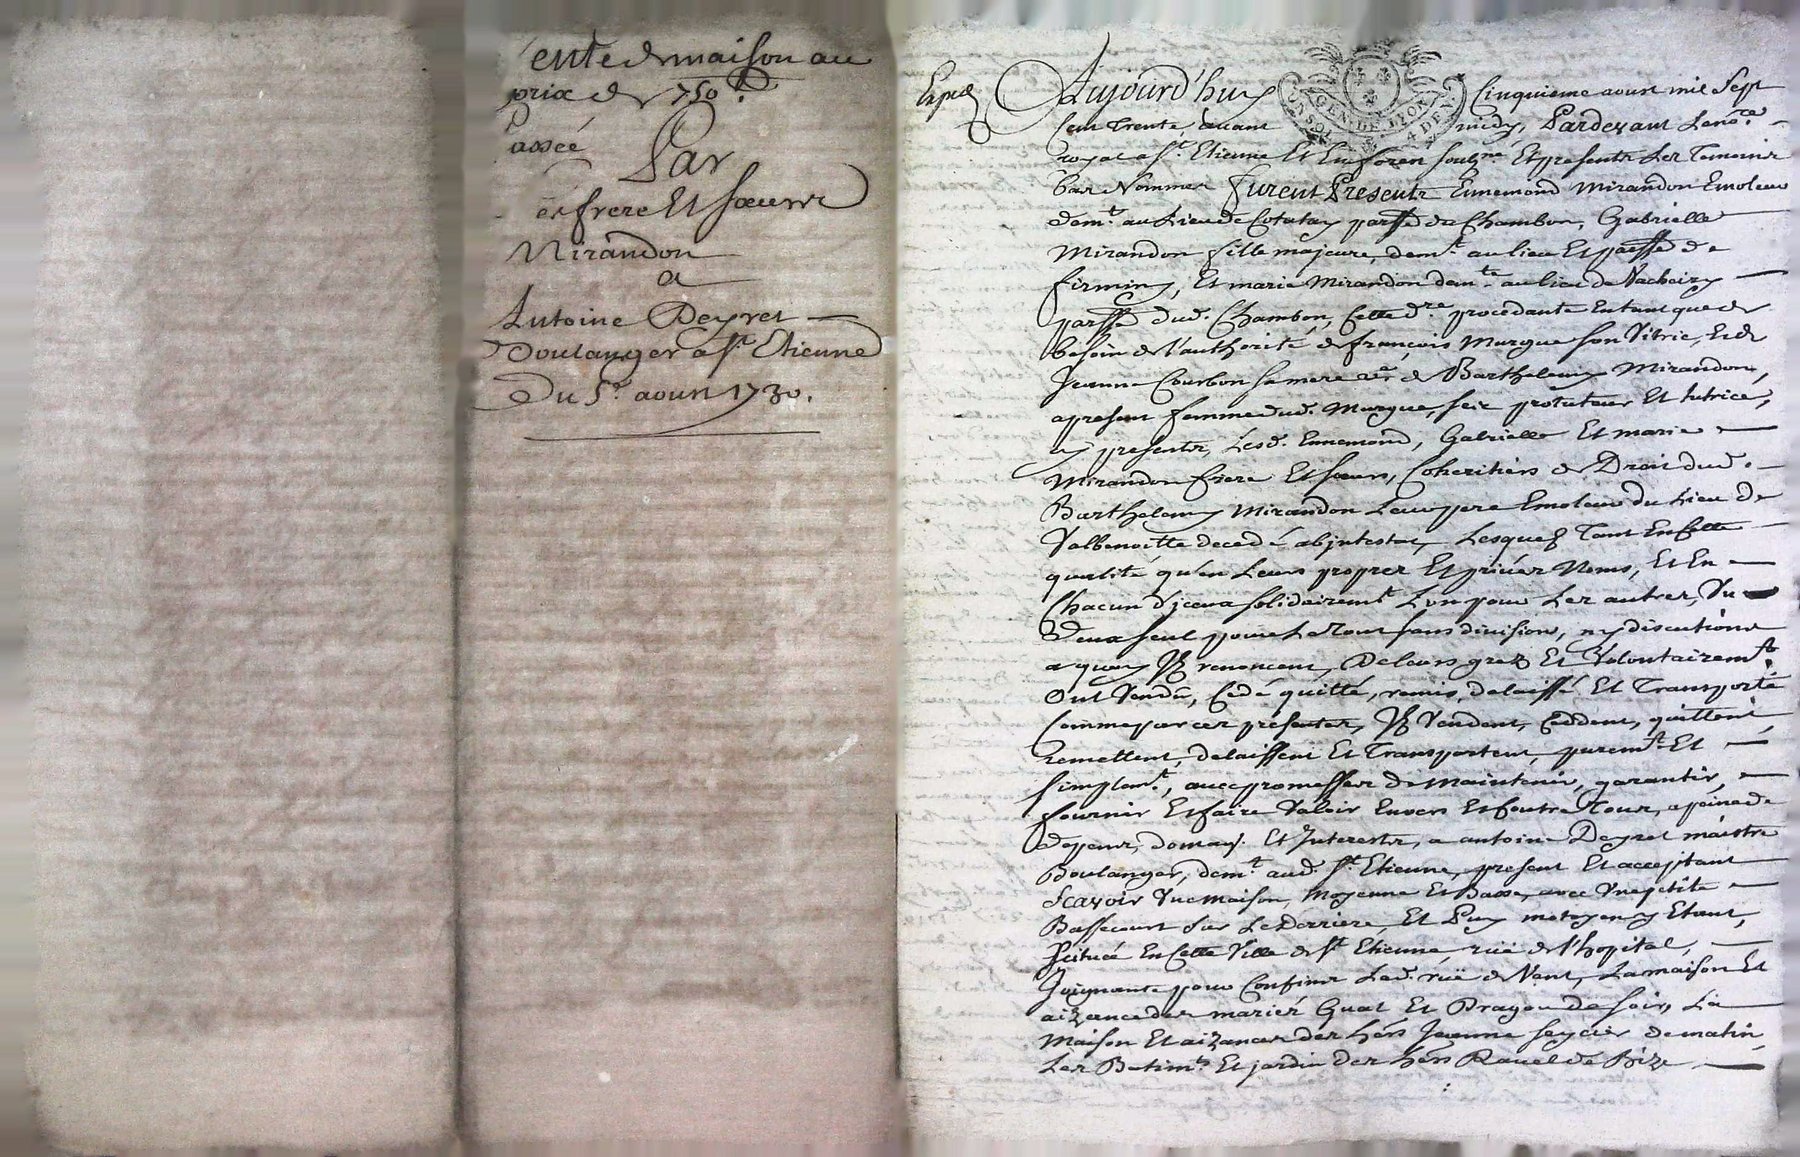 Vente de maison au
prix de 750 #.
Passée
Par
frere Et sœurs
Mirandon
a
Antoine Deyret —
Boulanger a St. Etienne
Du 5e. aoust 1730.
Exped
Aujourd'huy Cinquieme aoust mil Sept
GEN DE LYON
Cent Trente, avant midy, Pardevant Le nore.
royal a St. Etienne Et En foran soubsné Et presents Les Temoins
bas Nommes furent Presents Ennemond Mirandon Emoleur
demt. au Lieu de Cotatay parsse du Chambon, Gabrielle
Mirandon fille majeure, demt. au lieu Et parsse de
firminy, Et marie Mirandon demte. au lieu de Vachery
parsse dud. Chambon, Cette dre. procedante Entant que de
besoin de l'authorité de françois Murgue son Vitric, Et de
Jeanne Courbon sa mere de Barthelemy Mirandon,
apresent femme dud. Murgue, ses protuteur Et tutrice,
y presents, Lesd. Ennemond, Gabrielle Et marie
Mirandon frere Et sœurs, Coheritiers de Droit dud.
Barthelemy Mirandon Leur pere Emoleur du Lieu de
Valbenoitte decedé abjntestat, Lesquels Tant En cette
qualité qu'en Leurs propres Et privés Noms, Et En
Chacun d'jceux solidairemt. L'un pour Les autres, Un
deux seul pour Le Tout sans division, ny discution
a quoy Ils renoncent, De leurs grés Et Volontairemt.
Ont Vendû, Cedé quitté, remis, delaissé Et Transporté
Comme par ces présentes, Ils Vendent, Ceddent, quittent,
Remettent, delaissent Et Transportent, puremt. Et
simplemt., avec promesses de Maintenir, garantir,
fournir Et faire Valoir Envers Et Contre Tous, a peine de
depens, domag. Et Interests, a antoine Deyret maistre
Boulanger, demt. aud. St. Etienne, present Et acceptant
Scavoir Une maison, Moyenne Et Basse, avec Une petite
Bassecourt sur Le Derriere, Et Puy metoyen y Etant,
Scituée En Cette Ville de St. Etienne rüe de l'hopital,
Joignante pour Confins Lad. rüe de Vent, La maison Et
aizances des mariés Gual Et Dragon de soir, La
Maison Et aizances des hers Jeanne seycier de matin,
Les Batimts. Et jardin des hers Ravel de Bize